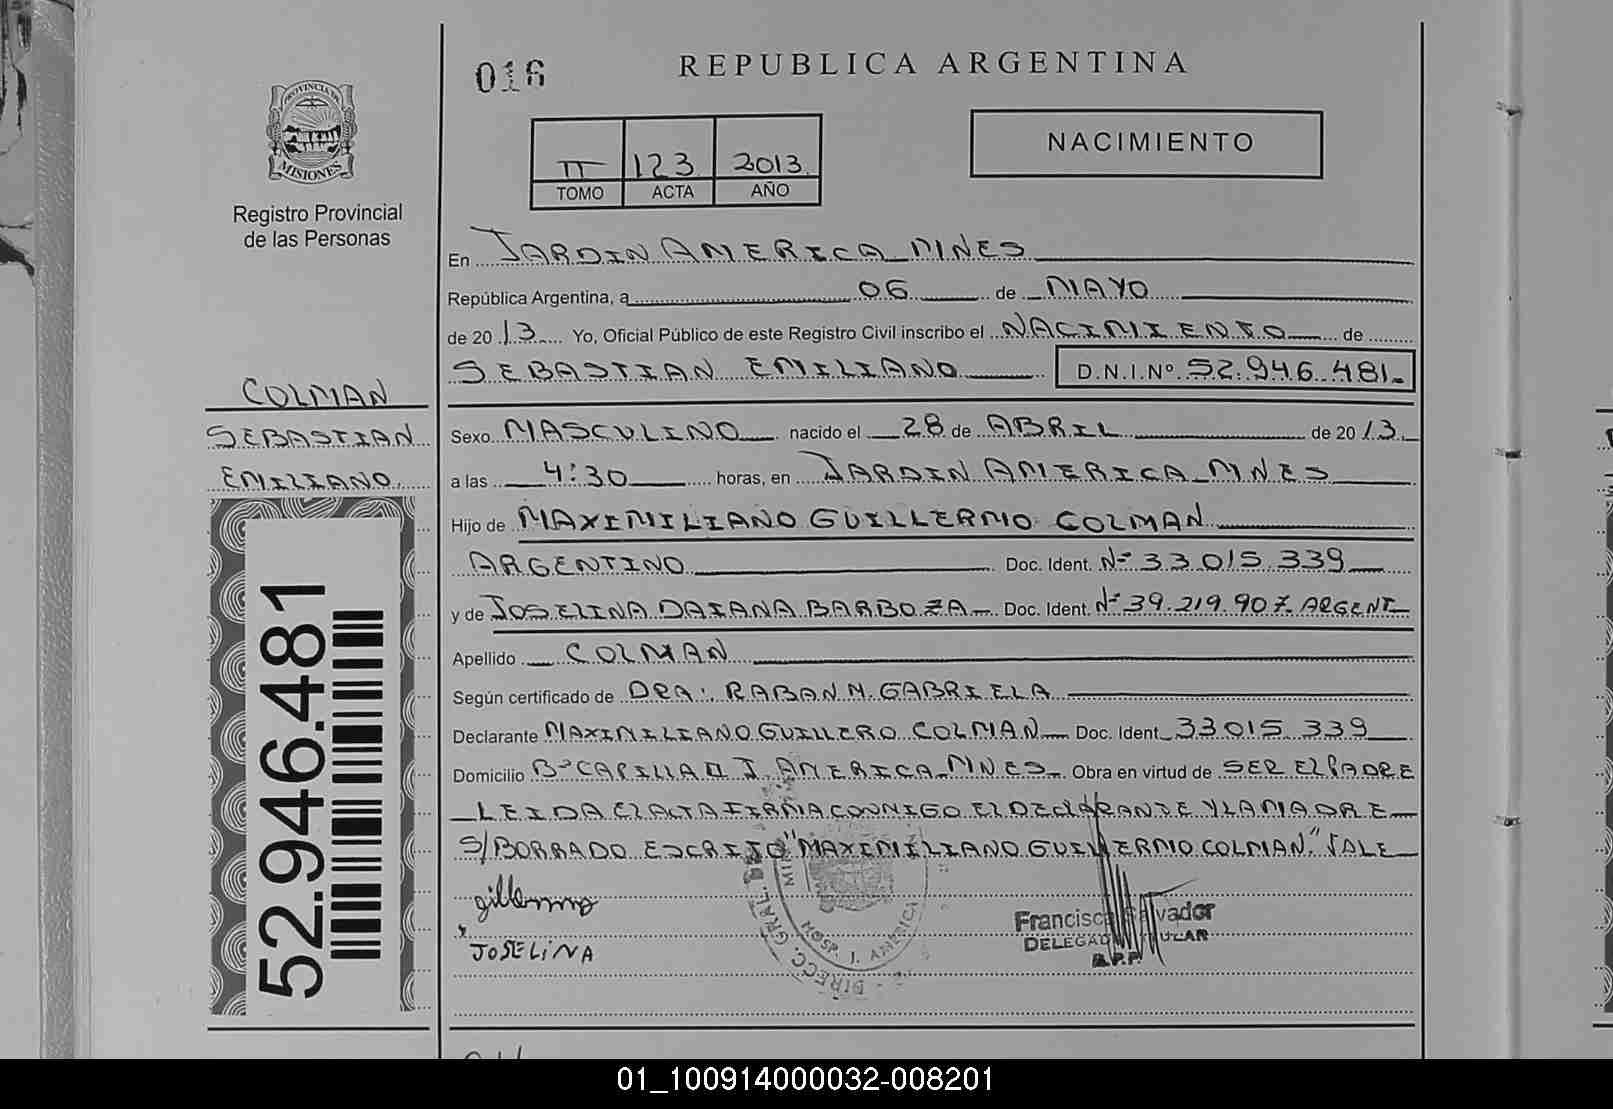 016
REPUBLICA ARGENTINA
PROVINCIA DE
MISIONES
Registro Provincial
de las Personas
NACIMIENTO
II 123 2013
TOMO ACTA AÑO
En JARDIN AMERICA MNES
República Argentina, a 06 de MAYO
de 2013 Yo, Oficial Público de este Registro Civil inscribo el NACIMIENTO de
SEBASTIAN EMILIANO D.N.I.Nº 52.946.481
COLMAN
SEBASTIAN
EMILIANO
52.946.481
Sexo MASCULINO nacido el 28 de ABRIL de 2013
a las 4:30 horas, en JARDIN AMERICA MNES
Hijo de MAXIMILIANO GUILLERMO COLMAN
ARGENTINO Doc. Ident. Nº 33.015.339
y de JOSELINA DAIANA BARBOZA Doc. Ident. Nº 39.219.907. ARGENT
Apellido COLMAN
Según certificado de DRA: RABAN M. GABRIELA
Declarante MAXIMILIANO GUILLERO COLMAN Doc. Ident 33015.339
Domicilio Bº CAPILLA II J. AMERICA MNES Obra en virtud de SER EL PADRE
LEIDA EL ACTA FIRMA CONMIGO EL DECLARANTE Y LA MADRE
S/BORRADO ESCRITO "MAXIMILIANO GUILLERMO COLMAN." VALE
JOSELINA
DIRECC. GRAL.
HOSP. J. AMERICA
Francisco Salvador
DELEGADO TITULAR
R.P.P.
01_100914000032-008201